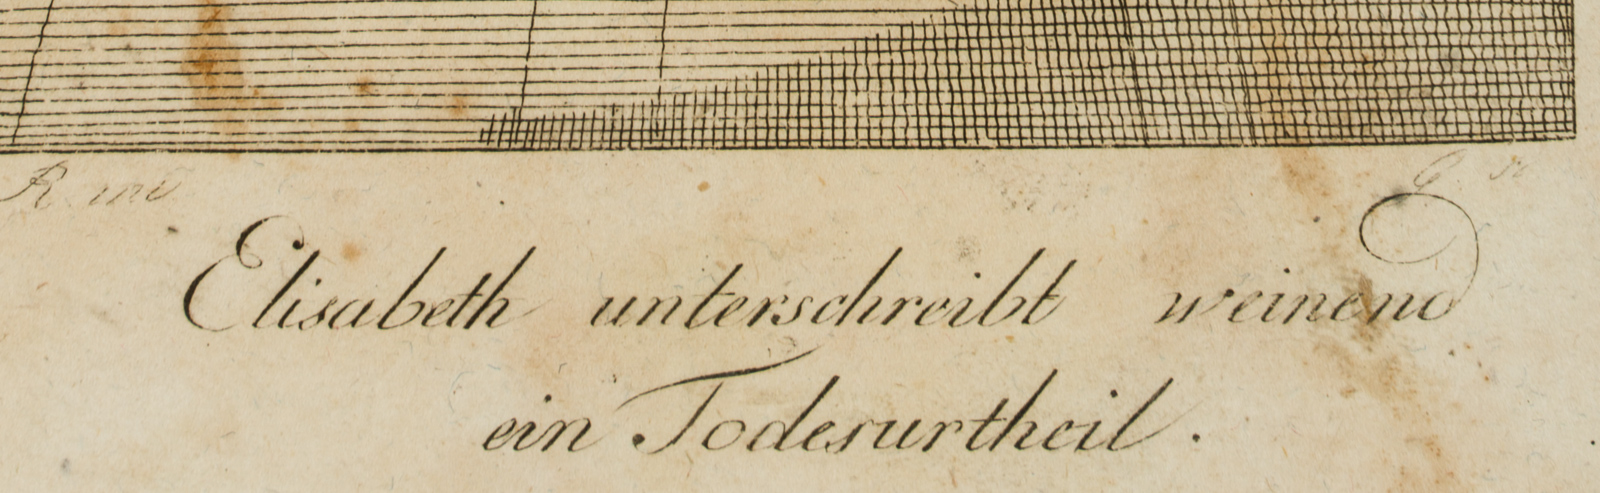 R inv
Elisabeth unterschreibt weinend
ein Todesurtheil.